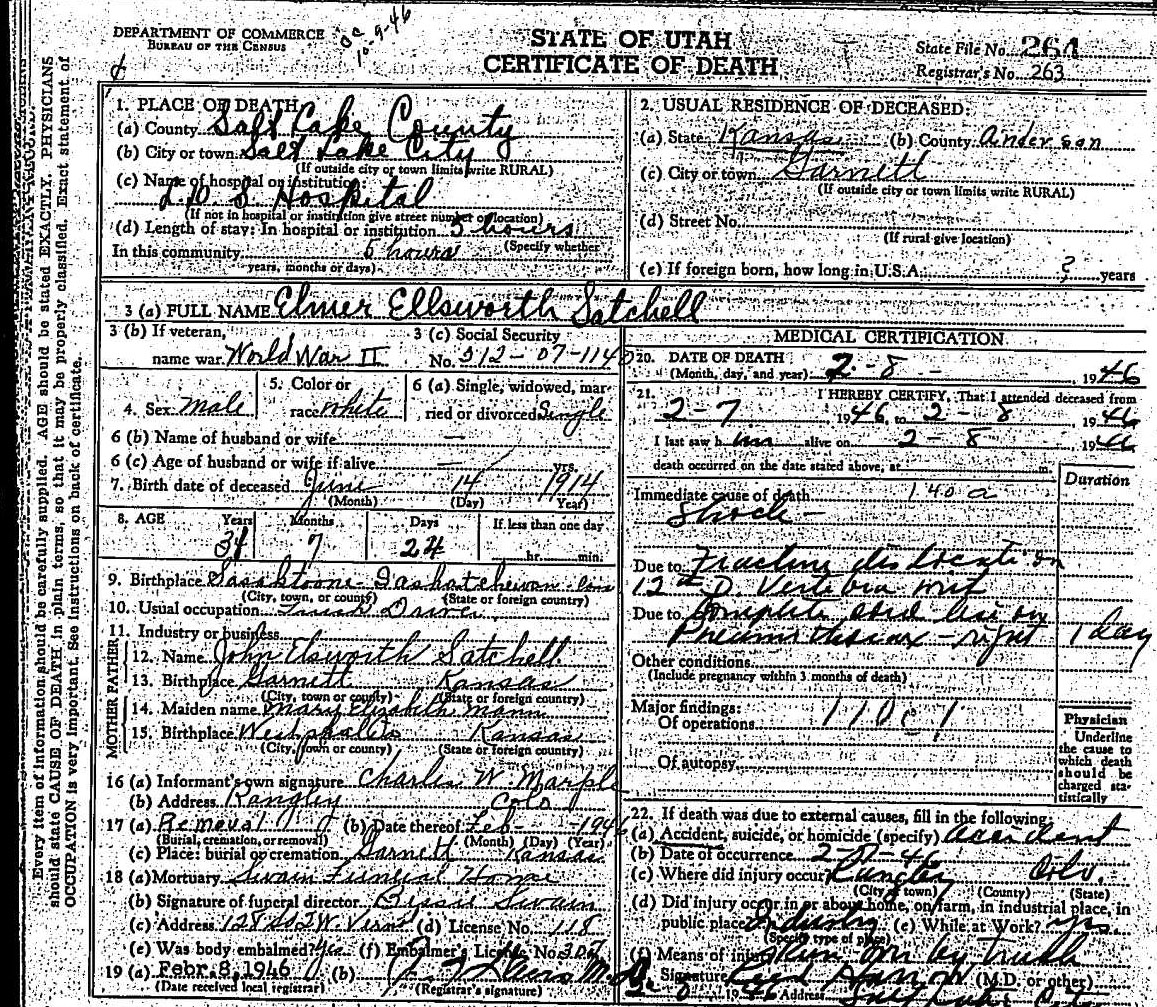 DEPARTMENT OF COMMERCE
BUREAU OF THE CENSUS
10-9-46
STATE OF UTAH
CERTIFICATE OF DEATH
State File No. 264
Registrar's No. 263
Every item of information should be carefully supplied. AGE should be stated EXACTLY. PHYSICIANS
should state CAUSE OF DEATH in plain terms, so that it may be properly classified. Exact statement of
OCCUPATION is very important. See instructions on back of certificate.
1. PLACE OF DEATH
(a) County Salt Lake County
(b) City or town Salt Lake City
(If outside city or town limits write RURAL)
(c) Name of hospital or institution:
L.D.S. Hospital
(If not in hospital or institution give street number or location)
(d) Length of stay: In hospital or institution 5 hours
(Specify whether
In this community 5 hours
years, months or days)
2. USUAL RESIDENCE OF DECEASED:
(a) State Kansas (b) County Anderson
(c) City or town Garnett
(If outside city or town limits write RURAL)
(d) Street No.
(If rural give location)
(e) If foreign born, how long in U.S.A. ? years
3 (a) FULL NAME Elmer Ellsworth Satchell
3 (b) If veteran,
name war World War II
3 (c) Social Security
No. 512-07-1140
4. Sex male
5. Color or
race white
6 (a) Single, widowed, mar-
ried or divorced Single
6 (b) Name of husband or wife —
6 (c) Age of husband or wife if alive — yrs.
7. Birth date of deceased June 14 1914
(Month) (Day) (Year)
8. AGE Years Months Days If less than one day
31 7 24 hr. min.
9. Birthplace Sasktoone Saskatchewan
(City, town, or county) (State or foreign country)
10. Usual occupation Truck Driver
11. Industry or business
FATHER
12. Name John Elsworth Satchell
13. Birthplace Garnett Kansas
(City, town or county) (State or foreign country)
MOTHER
14. Maiden name Mary Elizabeth Mann
15. Birthplace Westphalia Kansas
(City, town or county) (State or foreign country)
16 (a) Informant's own signature Charles W. Marple
(b) Address Rangley Colo
17 (a) Removal (b) Date thereof Feb - 1946
(Burial, cremation, or removal) (Month) (Day) (Year)
(c) Place: burial or cremation Garnett Kansas
18 (a) Mortuary Swain Funeral Home
(b) Signature of funeral director Bessie Swain
(c) Address 128 So. (d) License No. 118
(e) Was body embalmed? Yes (f) Embalmer's License No. 307
19 (a) Febr. 8, 1946 (b) M.D.
(Date received local registrar) (Registrar's signature)
MEDICAL CERTIFICATION
20. DATE OF DEATH
(Month, day, and year) 2-8- , 1946
21. I HEREBY CERTIFY, That I attended deceased from
2-7 1946, to 2-8 1946
I last saw him alive on 2-8 1946
death occurred on the date stated above, at m.
Duration
Immediate cause of death 140a
Shock -
Due to Fracture dislocation
12th D. Vertebra with
Due to Complete cord lesion
Pneumothorax - right 1 day
Other conditions
(Include pregnancy within 3 months of death)
Major findings: 170c1
Of operations
Of autopsy
Physician
Underline
the cause to
which death
should be
charged sta-
tistically
22. If death was due to external causes, fill in the following:
(a) Accident, suicide, or homicide (specify) accident
(b) Date of occurrence 2-7-46
(c) Where did injury occur Rangley Colo.
(City or town) (County) (State)
(d) Did injury occur in or about home, on farm, in industrial place, in
public place Industry (e) While at Work? yes
(Specify type of place)
(f) Means of injury Run on by truck
Signature (M.D. or other)
Address Salt Lake